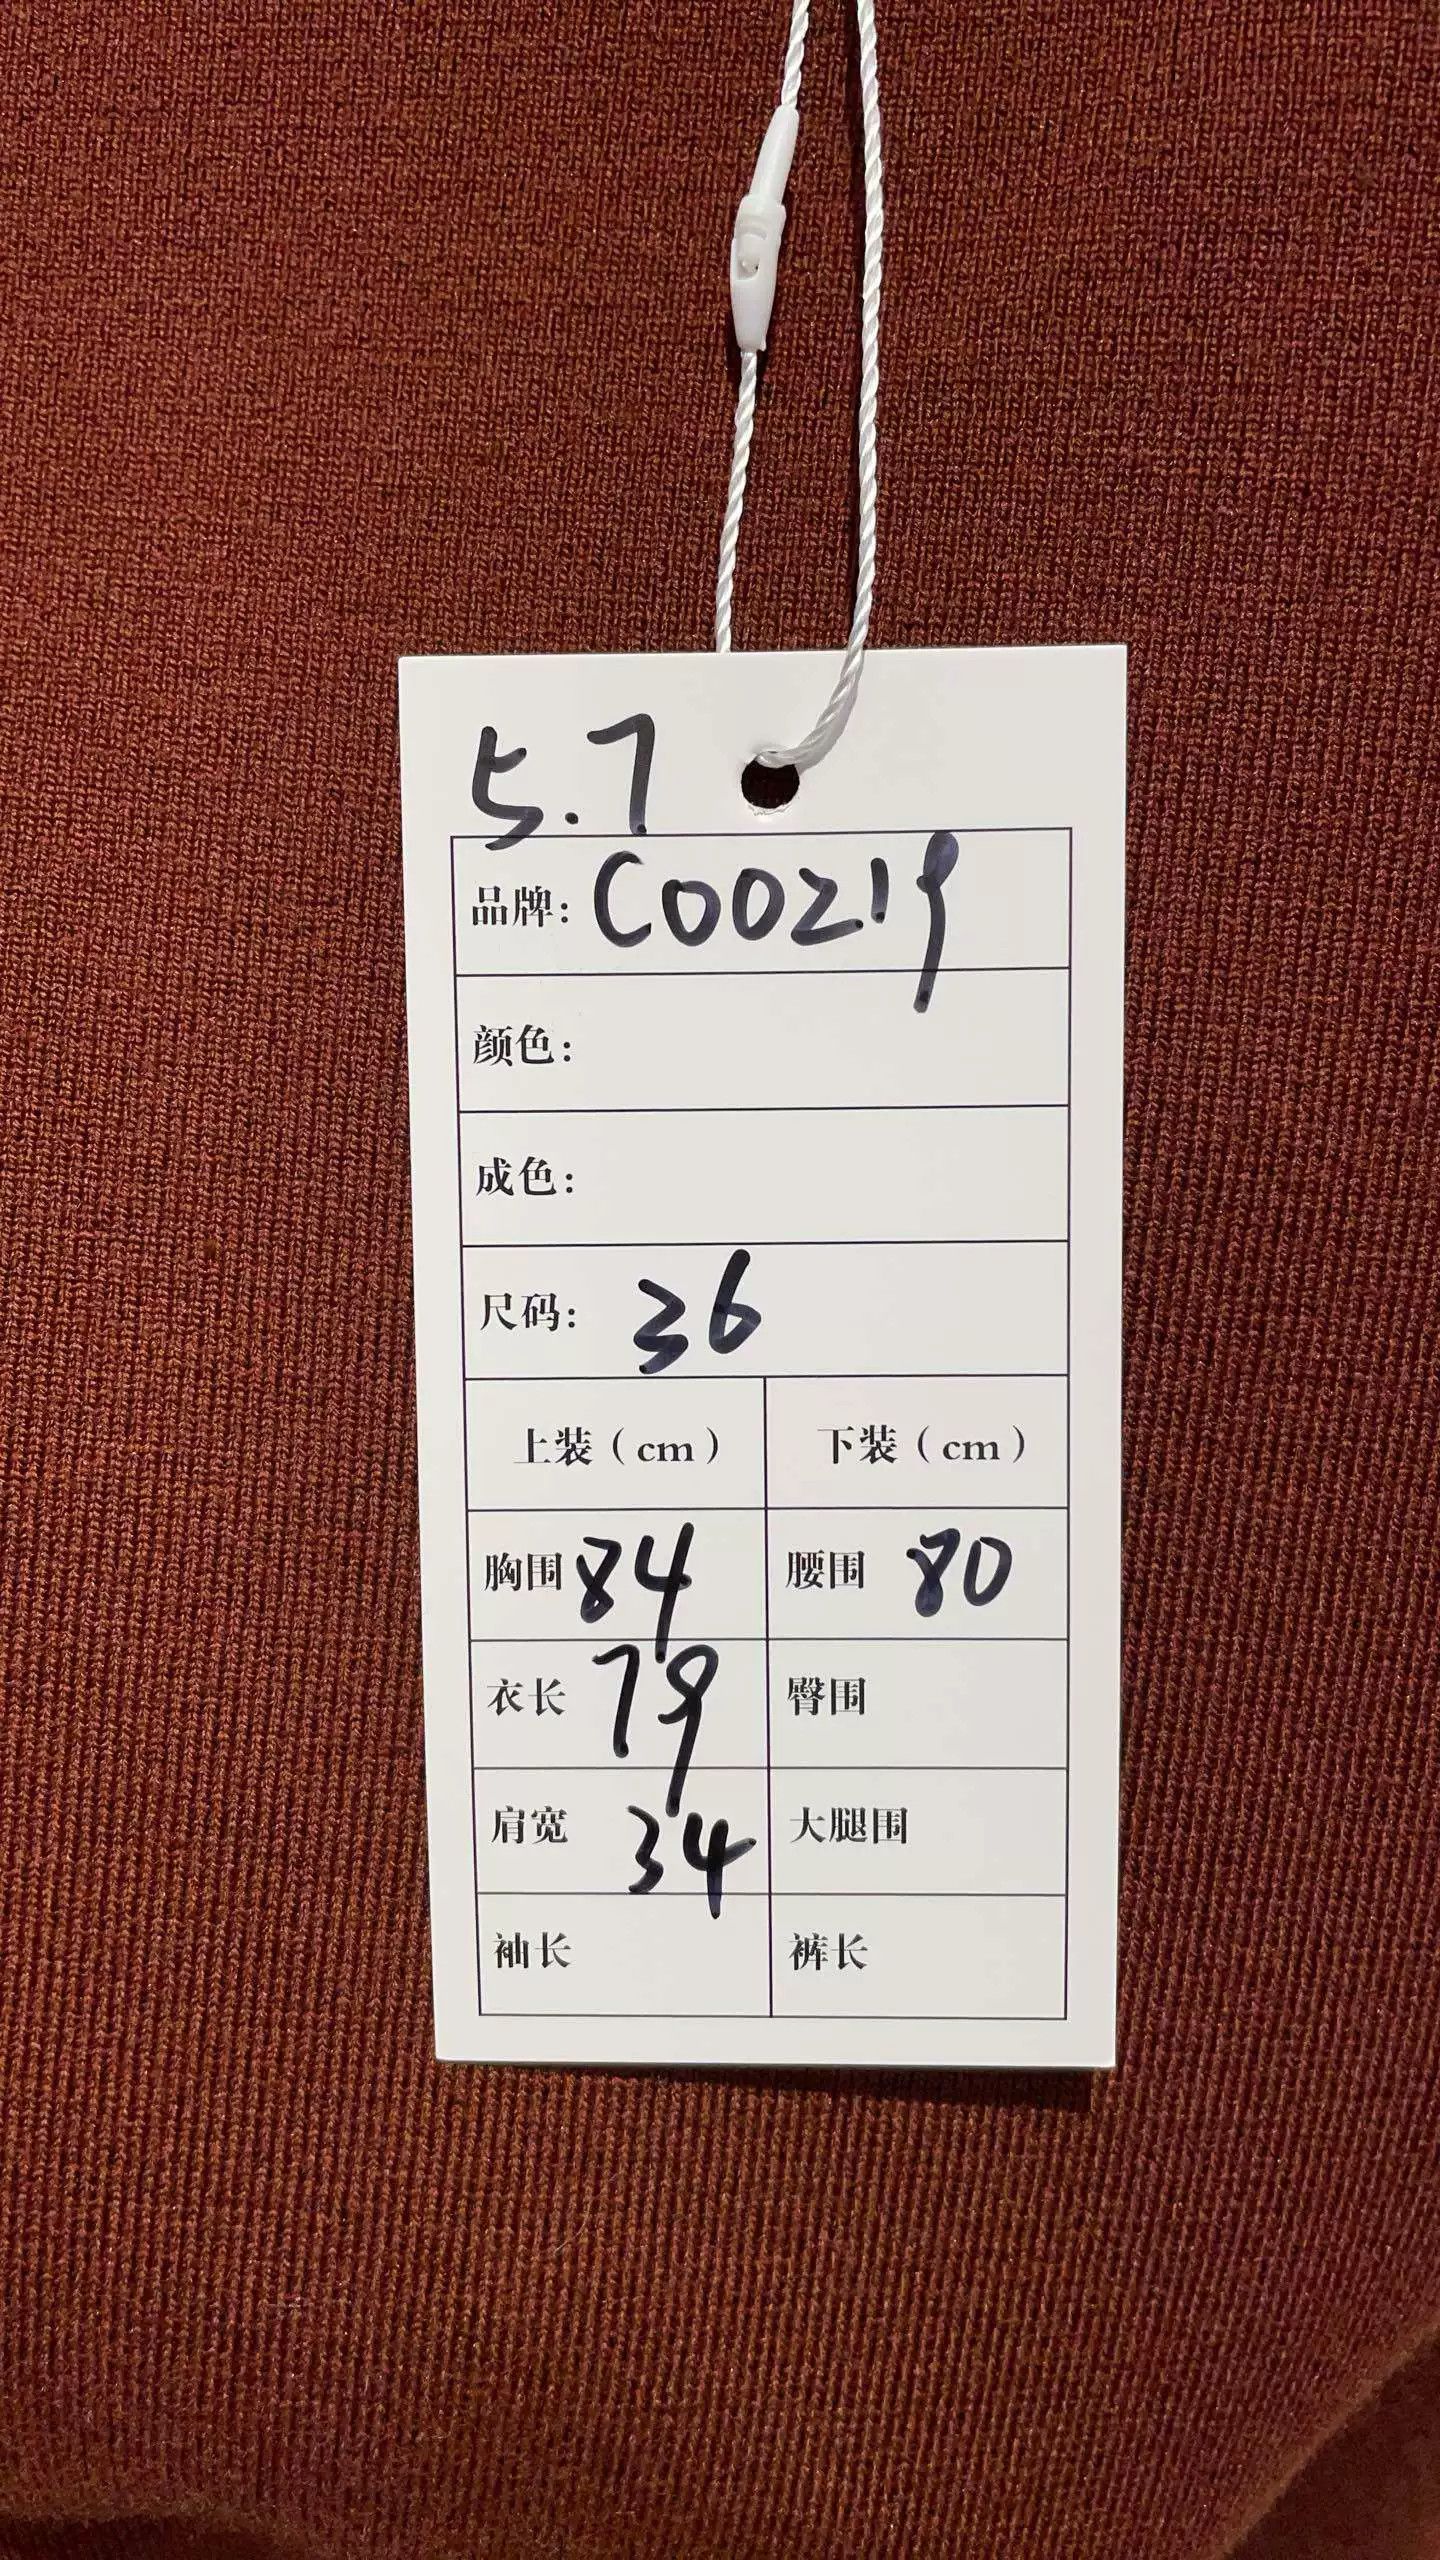 5.7
品牌: C00219
颜色:
成色:
尺码: 36
上装（cm） 下装（cm）
胸围 84 腰围 80
衣长 79 臀围
肩宽 34 大腿围
袖长 裤长